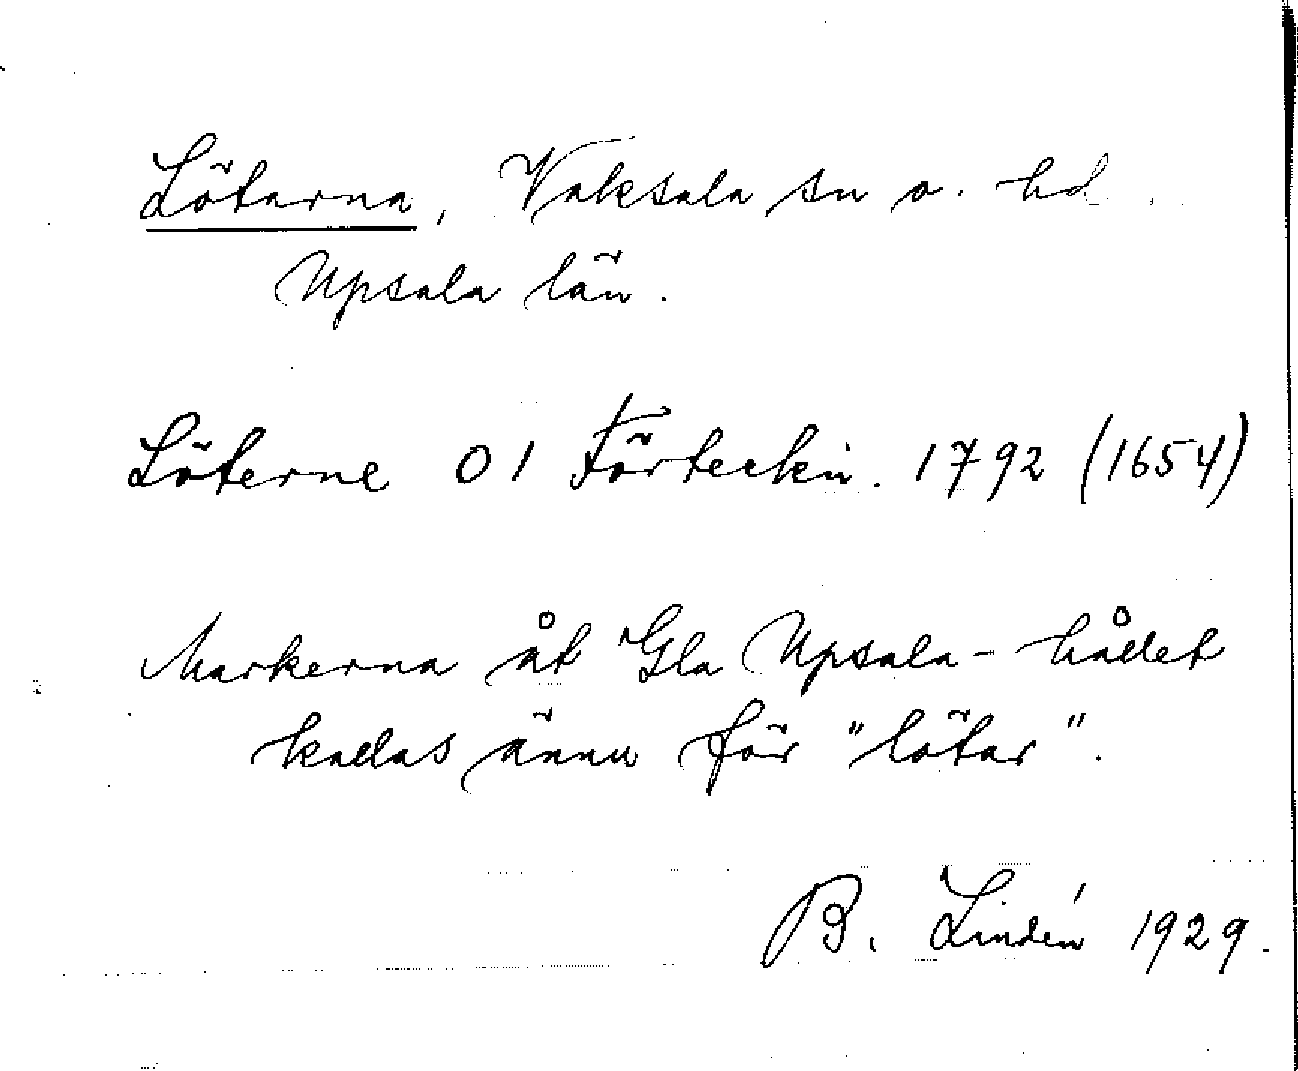 Lötarna, Vaksala sn o. hd.
Upsala län.
Löterne 01 Förteckn. 1792 (1654)
Markerna åt Gla Upsala-hållet
kallas ännu för "lötar".
B. Lindén 1929.